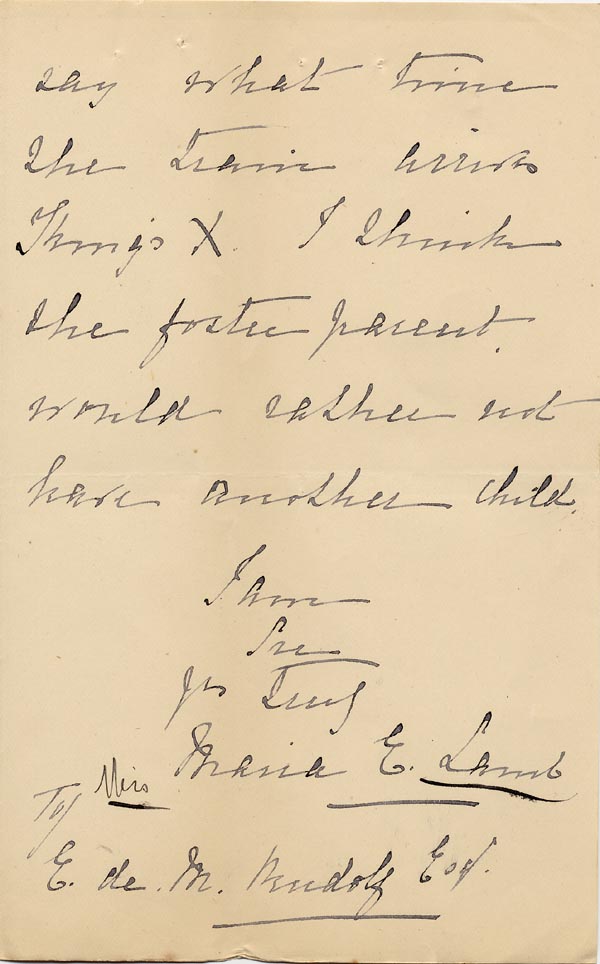 say what time
the train arrives
Kings X. I think
the foster parent
would rather not
have another child.
I am
Sir
yrs Truly
Maria E. Lamb
Miss
To/
E. de. M. Rudolf Esq.